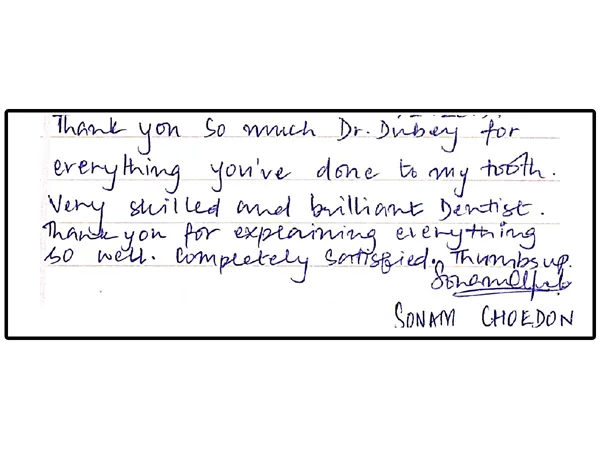 Thank you so much Dr. Dubey for
everything you've done to my tooth.
Very skilled and brilliant Dentist.
Thank you for explaining everything
so well. Completely satisfied. Thumbs up.
SONAM CHOEDON